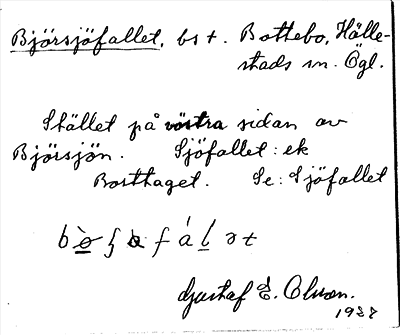 Björsjöfallet, bst. Bottebo, Hälle-
stads sn. Ögl.
Stället på västra sidan av
Björsjön. Sjöfallet: ek
Borttaget. Se: Sjöfallet
Gustaf E. Olsson.
1937